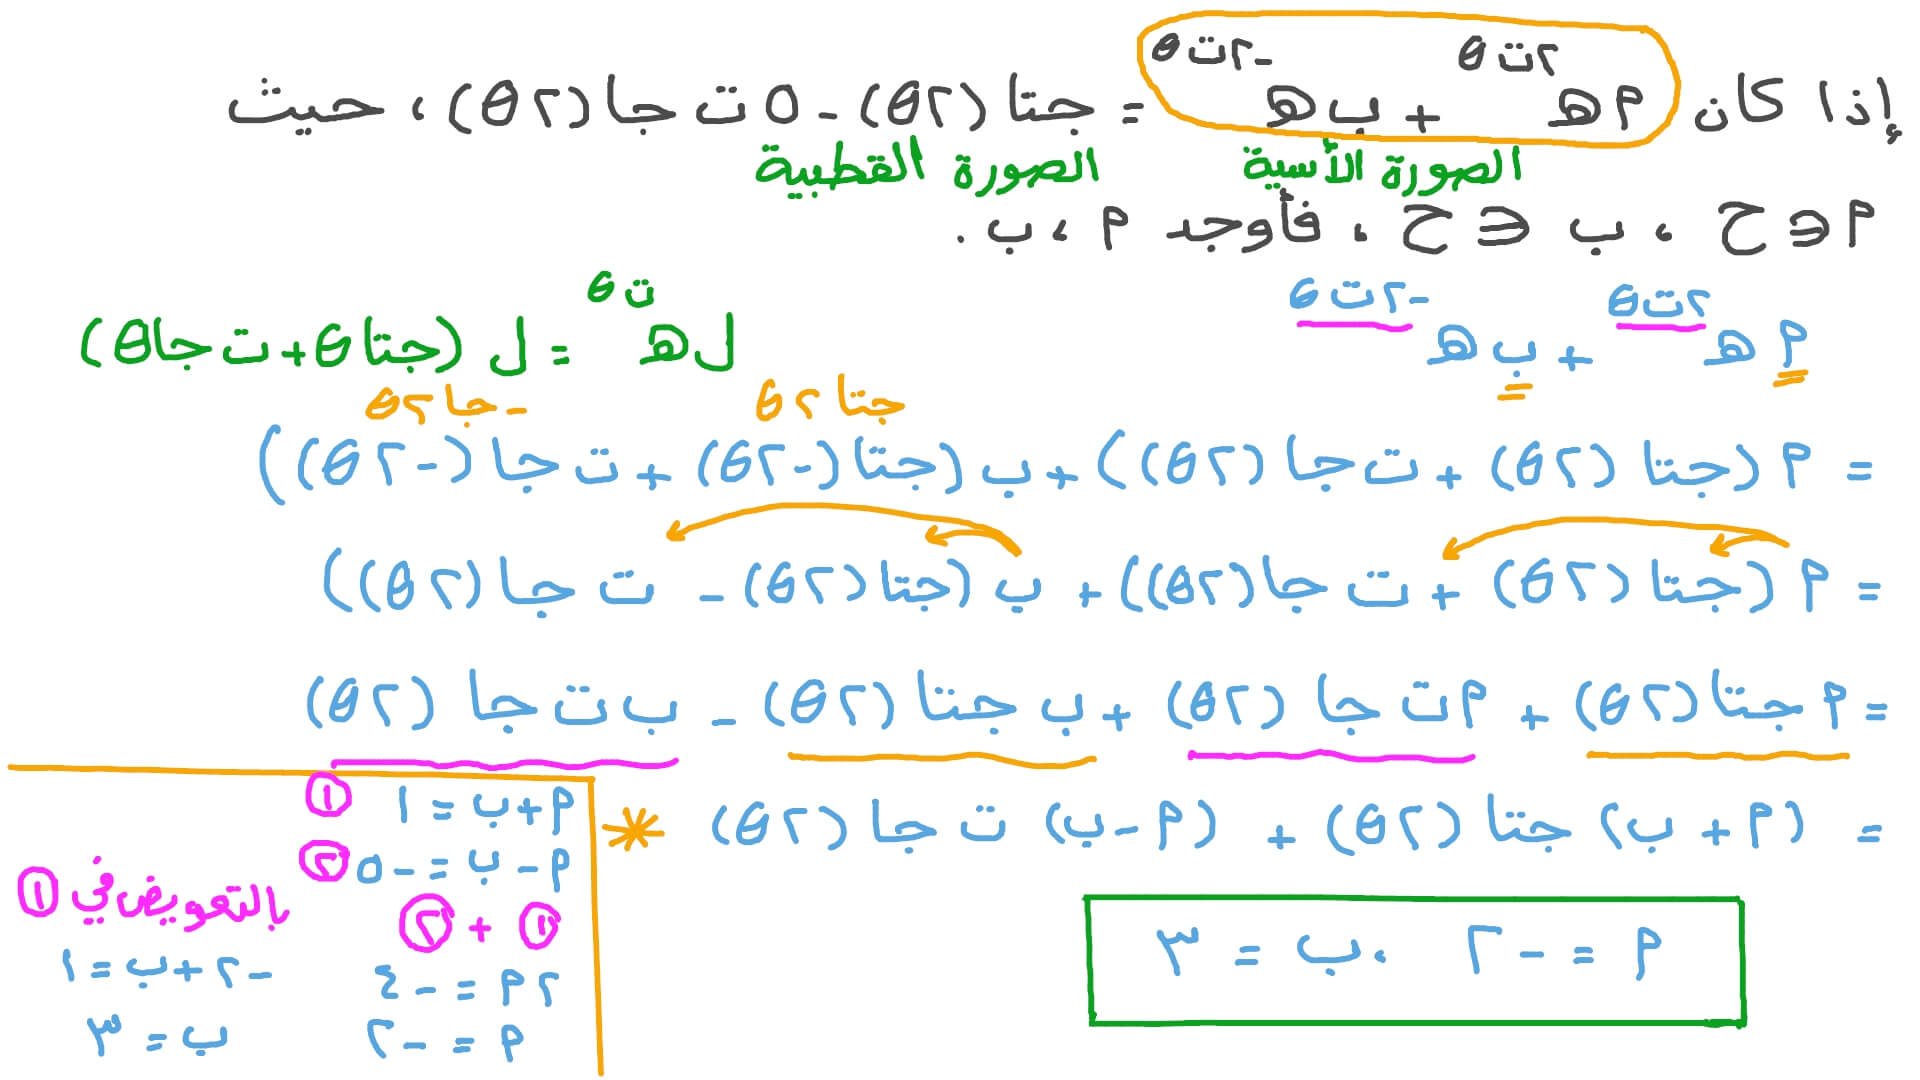 إذا كان م هـ^(٢ت θ) + ب هـ^(-٢ت θ) = جتا (٢θ) - ٥ ت جا (٢θ) ، حيث
الصورة الأسية الصورة القطبية
م ∈ ح ، ب ∈ ح ، فأوجد م ، ب .
م هـ^(٢ت θ) + ب هـ^(-٢ت θ)
ل هـ^(ت θ) = ل (جتا θ + ت جا θ)
جتا ٢θ -جا ٢θ
= م (جتا (٢θ) + ت جا (٢θ)) + ب (جتا (-٢θ) + ت جا (-٢θ))
= م (جتا (٢θ) + ت جا (٢θ)) + ب (جتا (٢θ) - ت جا (٢θ))
= م جتا (٢θ) + م ت جا (٢θ) + ب جتا (٢θ) - ب ت جا (٢θ)
= (م + ب) جتا (٢θ) + (م - ب) ت جا (٢θ) *
م + ب = ١ ①
م - ب = -٥ ②
① + ②
٢ م = -٤
م = -٢
بالتعويض في ①
-٢ + ب = ١
ب = ٣
م = -٢ ، ب = ٣